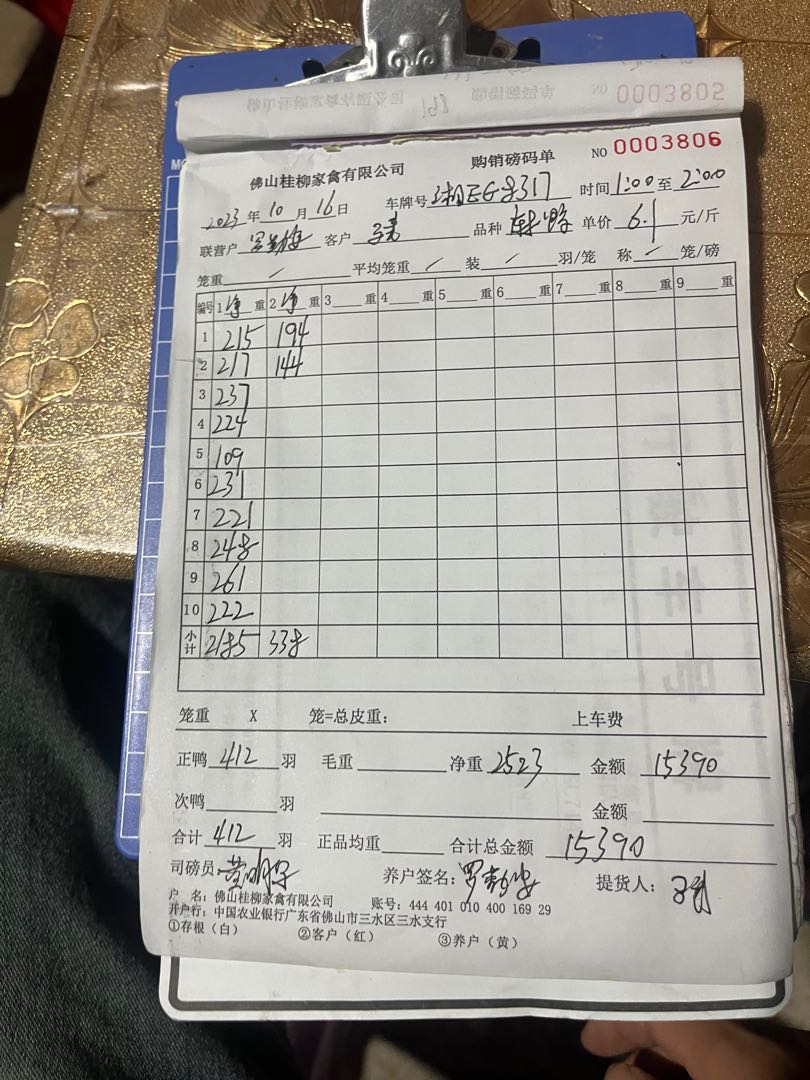 NO 0003805
佛山桂柳家禽有限公司 购销磅码单 NO 0003806
2023年10月16日 车牌号 时间1:00至2:00
联营户 客户 品种 单价6.1元/斤
笼重/ 平均笼重/ 装/羽/笼 称/笼/磅
编号 1净重 2净重 3重 4重 5重 6重 7重 8重 9重
1 215 194
2 217 144
3 237
4 224
5 109
6 231
7 221
8 248
9 261
10 222
小计 2185 338
笼重 X 笼=总皮重： 上车费
正鸭412羽 毛重 净重2523 金额15390
次鸭 羽 金额
合计412羽 正品均重 合计总金额15390
司磅员: 养户签名: 提货人:
户 名：佛山桂柳家禽有限公司 账号：444 401 010 400 169 29
开户行：中国农业银行广东省佛山市三水区三水支行
①存根（白） ②客户（红） ③养户（黄）